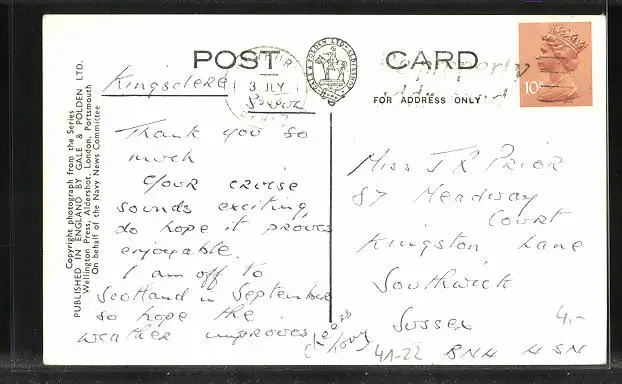 POST CARD
FOR ADDRESS ONLY
GALE & POLDEN LTD. ALDERSHOT
10P
3 JLY
Copyright photograph from the Series
PUBLISHED IN ENGLAND BY GALE & POLDEN LTD.
Wellington Press, Aldershot, London, Portsmouth
On behalf of the Navy News Committee
Kingsclere
Thank you so
much
Your cruise
sounds exciting,
do hope it proves
enjoyable.
I am off to
Scotland in September
so hope the
weather improves
Miss J R Prior
87 Meadway
Court
Kingston Lane
Southwick
Sussex
BN4 4SN
4.-